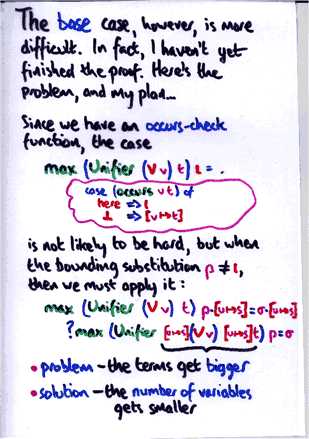 The base case, however, is more
difficult. In fact, I haven't yet
finished the proof. Here's the
problem, and my plan...
Since we have an occurs-check
function, the case
max (Unifier (V v) t) ι = .
case (occurs v t) of
here => ι
⊥ => [v↦t]
is not likely to be hard, but when
the bounding substitution ρ ≠ ι,
then we must apply it:
max (Unifier (V v) t) ρ·[u↦s] = σ·[u↦s]
? max (Unifier [u↦s](V v) [u↦s]t) ρ = σ
• problem – the terms get bigger
• solution – the number of variables
gets smaller